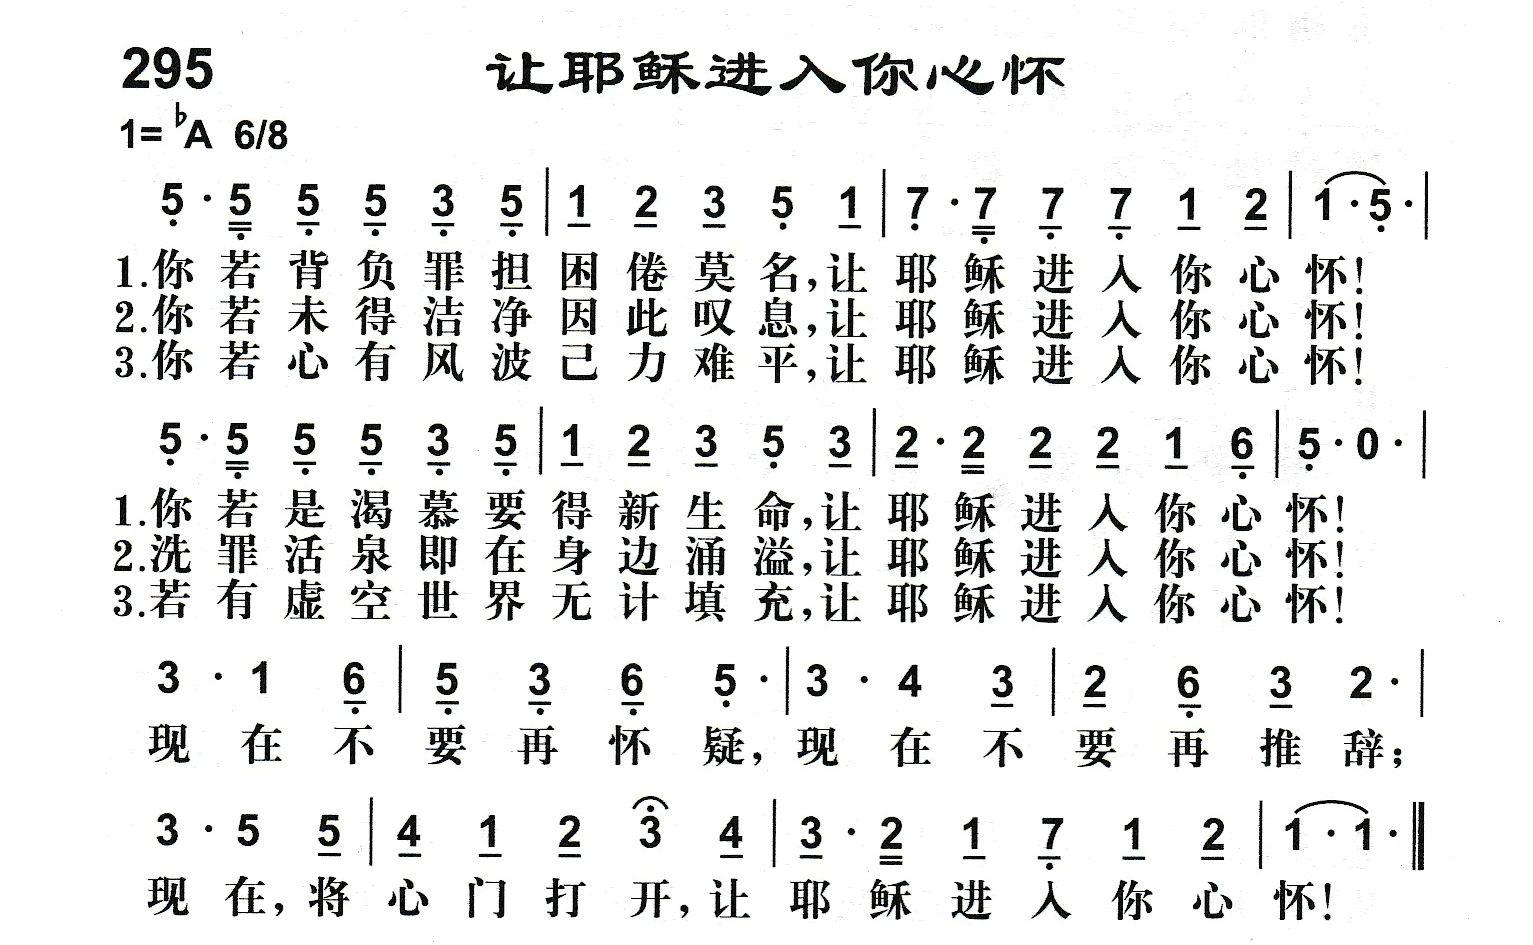 295 让耶稣进入你心怀
1= ♭A 6/8
5 · 5 5 5 3 5 | 1 2 3 5 1 | 7 · 7 7 7 1 2 | 1 · 5 · |
1.你若背负罪担困倦莫名,让耶稣进入你心怀!
2.你若未得洁净因此叹息,让耶稣进入你心怀!
3.你若心有风波己力难平,让耶稣进入你心怀!
5 · 5 5 5 3 5 | 1 2 3 5 3 | 2 · 2 2 2 1 6 | 5 · 0 · |
1.你若是渴慕要得新生命,让耶稣进入你心怀!
2.洗罪活泉即在身边涌溢,让耶稣进入你心怀!
3.若有虚空世界无计填充,让耶稣进入你心怀!
3 · 1 6 | 5 3 6 5 · | 3 · 4 3 | 2 6 3 2 · |
现在不要再怀疑,现在不要再推辞;
3 · 5 5 | 4 1 2 3 4 | 3 · 2 1 7 1 2 | 1 · 1 · ||
现在,将心门打开,让耶稣进入你心怀!